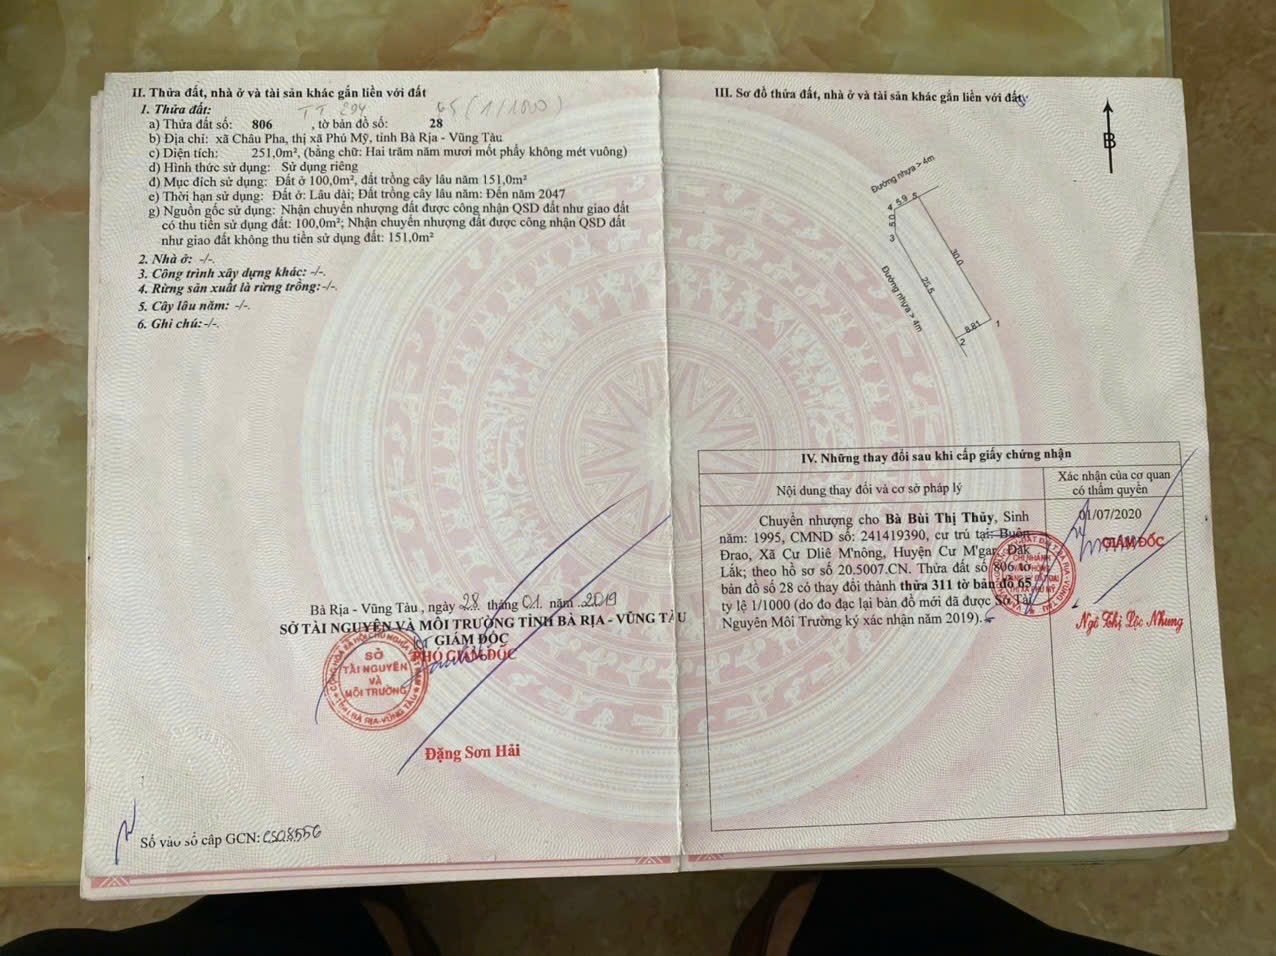 II. Thửa đất, nhà ở và tài sản khác gắn liền với đất
1. Thửa đất:
TT 294 65 (1/1000)
a) Thửa đất số: 806 , tờ bản đồ số: 28
b) Địa chỉ: xã Châu Pha, thị xã Phú Mỹ, tỉnh Bà Rịa - Vũng Tàu
c) Diện tích: 251,0m², (bằng chữ: Hai trăm năm mươi mốt phẩy không mét vuông)
d) Hình thức sử dụng: Sử dụng riêng
đ) Mục đích sử dụng: Đất ở 100,0m², đất trồng cây lâu năm 151,0m²
e) Thời hạn sử dụng: Đất ở: Lâu dài; Đất trồng cây lâu năm: Đến năm 2047
g) Nguồn gốc sử dụng: Nhận chuyển nhượng đất được công nhận QSD đất như giao đất
có thu tiền sử dụng đất: 100,0m²; Nhận chuyển nhượng đất được công nhận QSD đất
như giao đất không thu tiền sử dụng đất: 151,0m²
2. Nhà ở: -/-.
3. Công trình xây dựng khác: -/-.
4. Rừng sản xuất là rừng trồng:-/-.
5. Cây lâu năm: -/-.
6. Ghi chú:-/-.
Bà Rịa - Vũng Tàu , ngày 28 tháng 01 năm 2019
SỞ TÀI NGUYÊN VÀ MÔI TRƯỜNG TỈNH BÀ RỊA - VŨNG TÀU
KT GIÁM ĐỐC
PHÓ GIÁM ĐỐC
CỘNG HÒA XÃ HỘI CHỦ NGHĨA VIỆT NAM
SỞ
TÀI NGUYÊN
VÀ
MÔI TRƯỜNG
TỈNH BÀ RỊA-VŨNG TÀU
Đặng Sơn Hải
Số vào sổ cấp GCN: CS08556
III. Sơ đồ thửa đất, nhà ở và tài sản khác gắn liền với đất
B
Đường nhựa > 4m
4 5.9 5
5.0
3
30.0
25.5
Đường nhựa > 4m
8.81
1
2
IV. Những thay đổi sau khi cấp giấy chứng nhận
Nội dung thay đổi và cơ sở pháp lý
Xác nhận của cơ quan
có thẩm quyền
Chuyển nhượng cho Bà Bùi Thị Thủy, Sinh
năm: 1995, CMND số: 241419390, cư trú tại: Buôn
Đrao, Xã Cư Dliê M'nông, Huyện Cư M'gar, Đăk
Lắk; theo hồ sơ số 20.5007.CN. Thửa đất số 806 tờ
bản đồ số 28 có thay đổi thành thửa 311 tờ bản đồ 65
tỷ lệ 1/1000 (do đo đạc lại bản đồ mới đã được Sở Tài
Nguyên Môi Trường ký xác nhận năm 2019).
01/07/2020
GIÁM ĐỐC
CHI NHÁNH
Ngô Thị Lộc Nhung